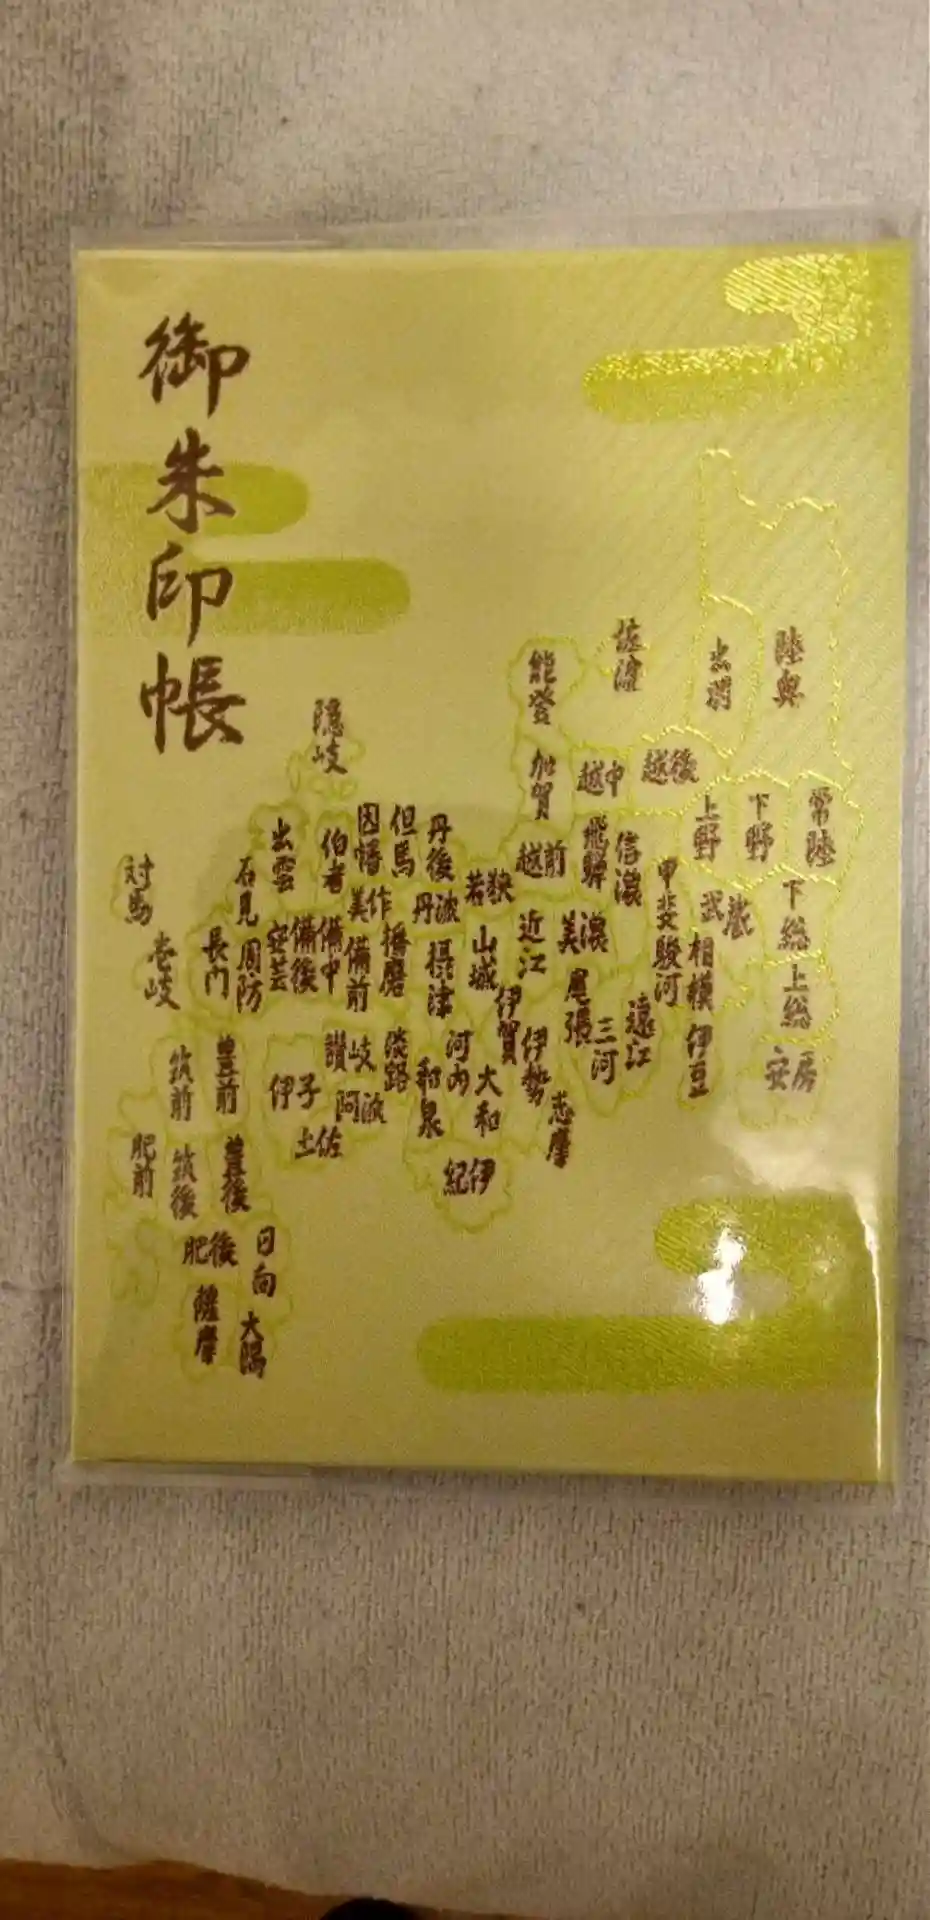 御朱印帳
佐渡
陸奥
出羽
能登
隠岐
加賀
越中
越後
上野
下野
常陸
対馬
壱岐
石見
出雲
伯耆
因幡
但馬
丹後
丹波
若狭
越前
飛騨
信濃
甲斐
武蔵
下総
上総
安房
長門
周防
安芸
備後
備中
美作
備前
播磨
摂津
山城
近江
美濃
駿河
相模
伊豆
遠江
三河
尾張
伊賀
伊勢
志摩
大和
河内
和泉
紀伊
淡路
讃岐
阿波
伊予
土佐
筑前
豊前
肥前
筑後
豊後
肥後
日向
薩摩
大隅